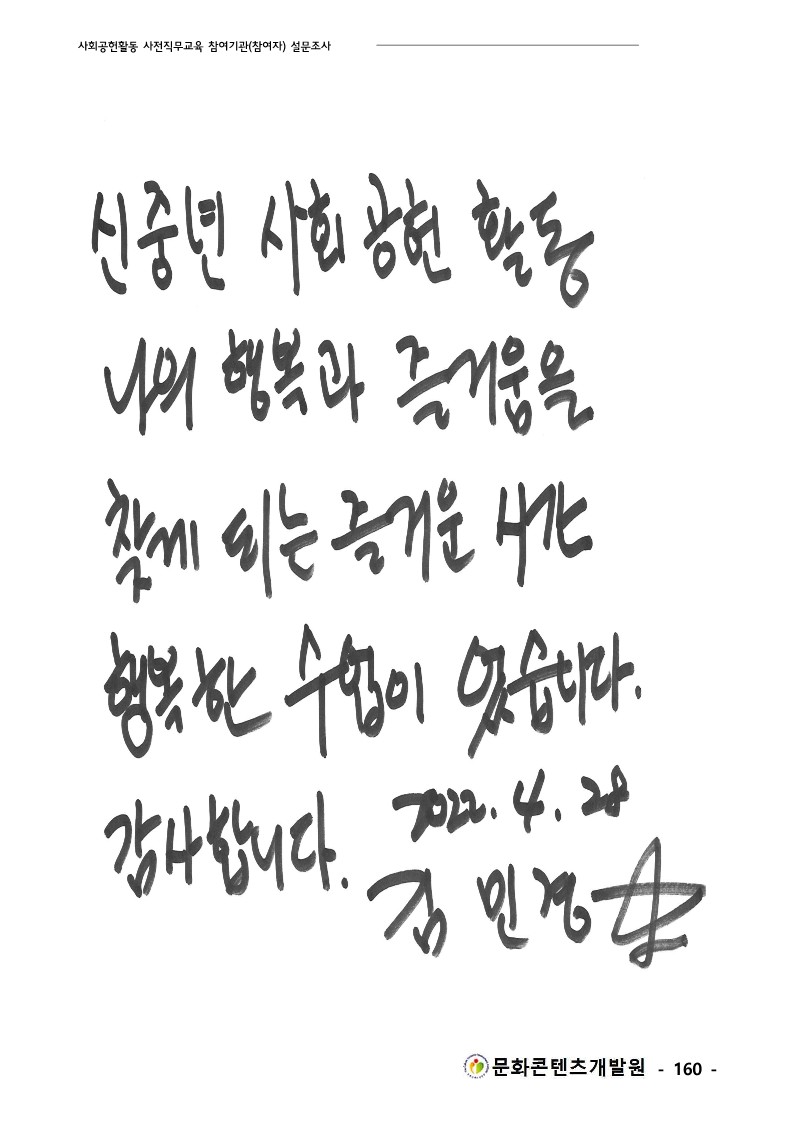 사회공헌활동 사전직무교육 참여기관(참여자) 설문조사
신중년 사회공헌 활동
나의 행복과 즐거움을
찾게 되는 즐거운 시간
행복한 수업이 었습니다.
감사합니다.
2022. 4. 28
김 민경
문화콘텐츠개발원 - 160 -